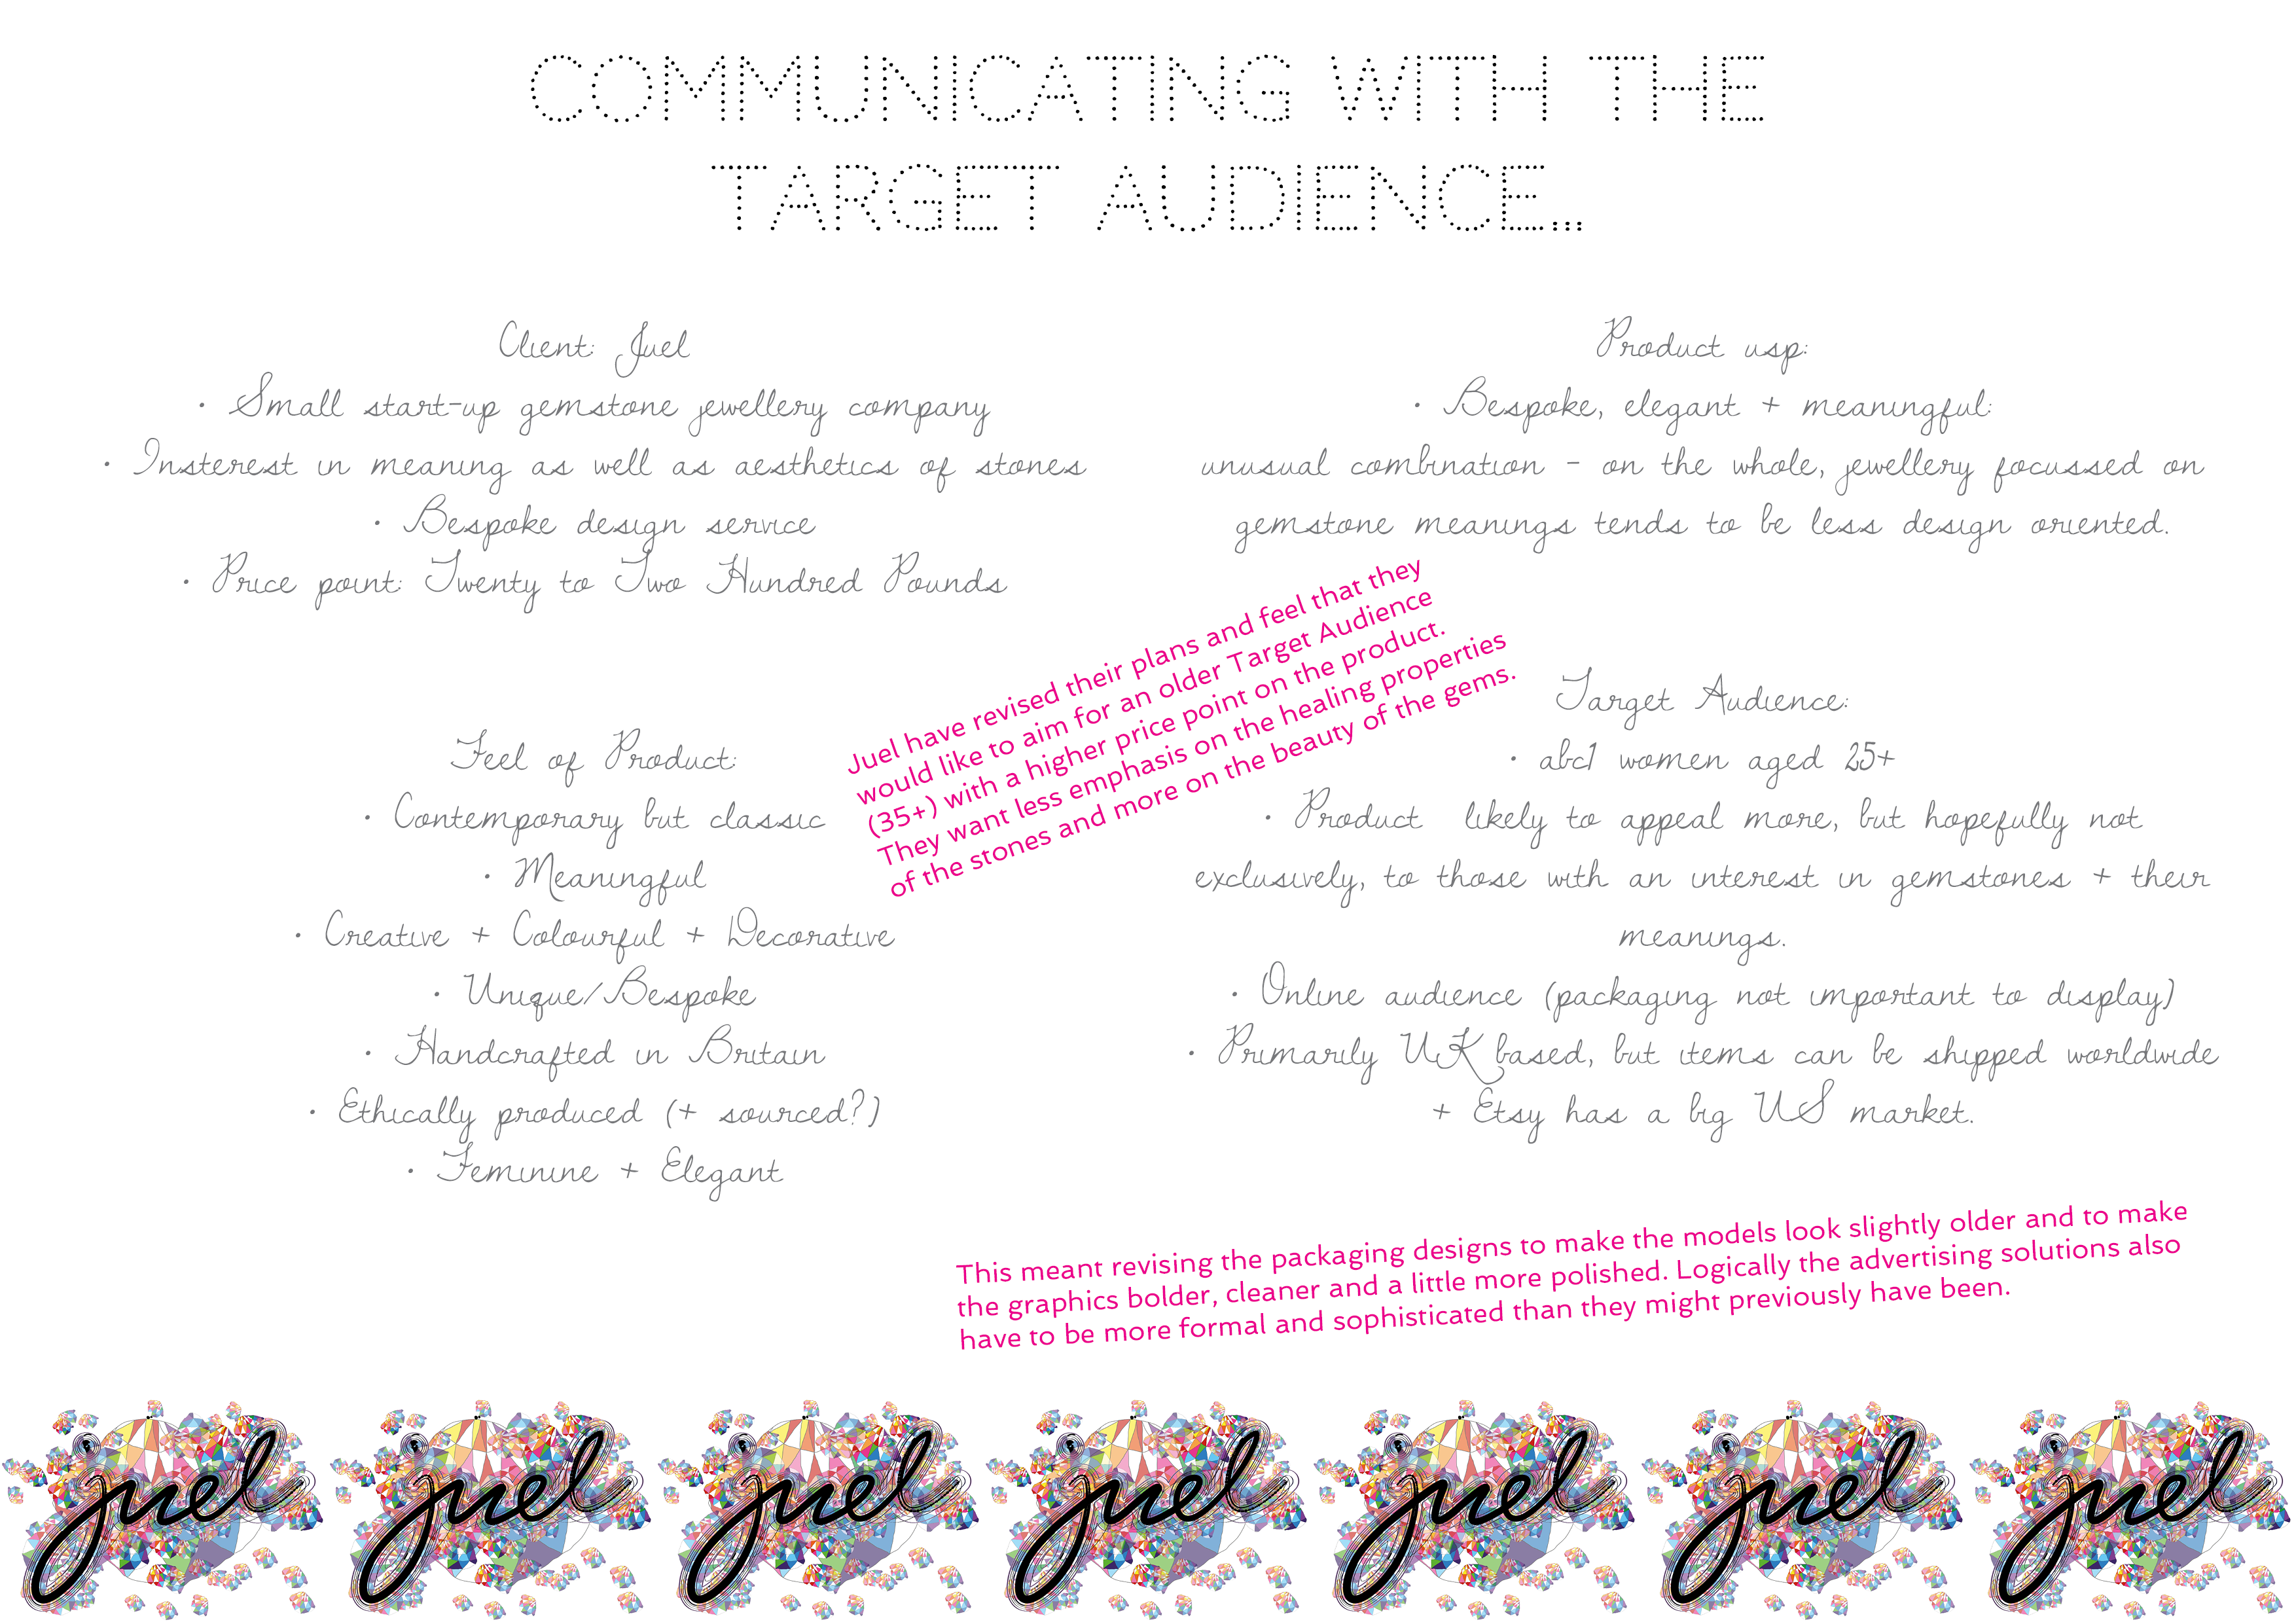 COMMUNICATING WITH THE
TARGET AUDIENCE...
Client: Juel
• Small start-up gemstone jewellery company
• Insterest in meaning as well as aesthetics of stones
• Bespoke design service
• Price point: Twenty to Two Hundred Pounds
Product usp:
• Bespoke, elegant + meaningful:
unusual combination - on the whole, jewellery focussed on
gemstone meanings tends to be less design oriented.
Juel have revised their plans and feel that they
would like to aim for an older Target Audience
(35+) with a higher price point on the product.
They want less emphasis on the healing properties
of the stones and more on the beauty of the gems.
Feel of Product:
• Contemporary but classic
• Meaningful
• Creative + Colourful + Decorative
• Unique/Bespoke
• Handcrafted in Britain
• Ethically produced (+ sourced?)
• Feminine + Elegant
Target Audience:
• abc1 women aged 25+
• Product likely to appeal more, but hopefully not
exclusively, to those with an interest in gemstones + their
meanings.
• Online audience (packaging not important to display)
• Primarily UK based, but items can be shipped worldwide
+ Etsy has a big US market.
This meant revising the packaging designs to make the models look slightly older and to make
the graphics bolder, cleaner and a little more polished. Logically the advertising solutions also
have to be more formal and sophisticated than they might previously have been.
juel juel juel juel juel juel juel